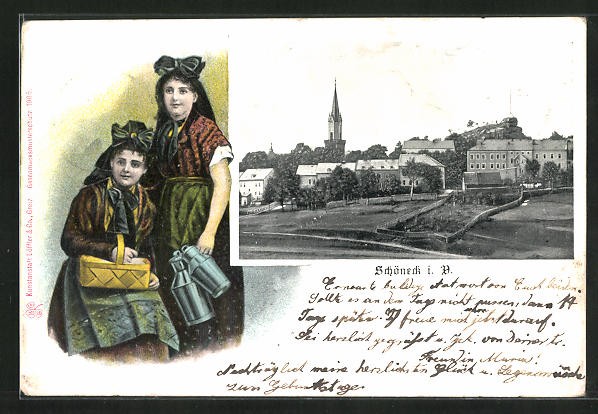 Schöneck i. V.
Erwarte baldige Antwort von Euch beiden.
Sollte es an dem Tage nicht passen, dann 14
Tage später. Ich freue mich schon jetzt darauf.
Sei herzlich gegrüßt u. gek. von Deiner tr.
Freundin Marie!
Nachträglich meine herzlichsten Glück u. Segenswünsche
zum Geburtstage.
Kunstanstalt Löffler & Co., Greiz Gebrauchsmusterschutz 1905.